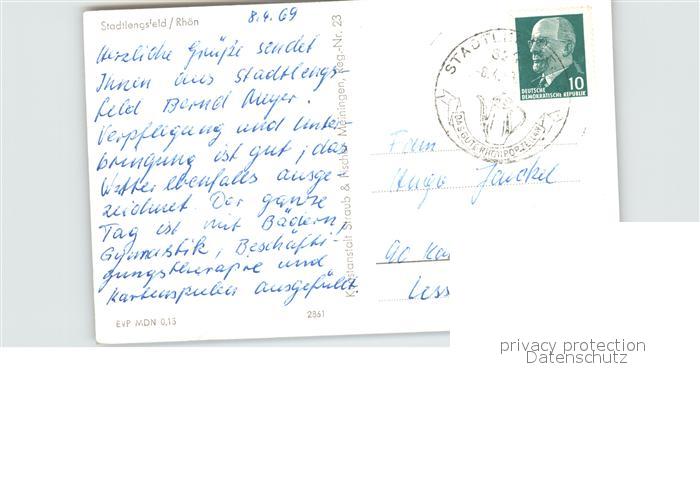 Stadtlengsfeld / Rhön
8.4.69
Herzliche Grüße sendet
Ihnen aus Stadtlengs-
feld Bernd Meyer.
Verpflegung und Unter-
bringung ist gut, das
Wetter ebenfalls ausge-
zeichnet. Der ganze
Tag ist mit Bädern,
Gymnastik, Beschäfti-
gungstherapie und
Kartenspielen ausgefüllt
EVP MDN 0,15
2861
Kunstanstalt Straub & Fischer Meiningen, Reg.-Nr. 23
STADTL
DAS GUTE RHÖNPORZELLAN
10
DEUTSCHE
DEMOKRATISCHE REPUBLIK
Fam
Hugo Jäckel
90 Kar
Less
privacy protection
Datenschutz